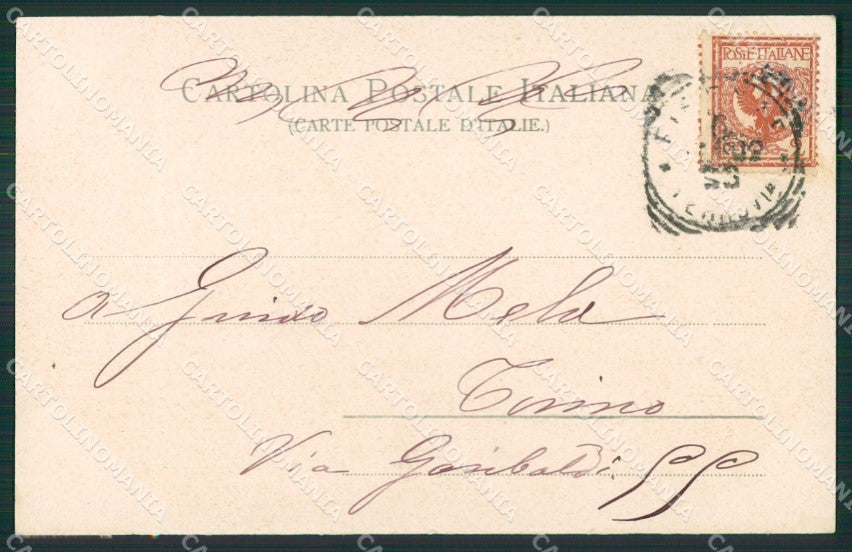 CARTOLINA POSTALE ITALIANA
(CARTE POSTALE D'ITALIE.)
POSTE ITALIANE
FERROVIA
a Guido Mela
Torino
Via Garibaldi 55
CARTOLINOMANIA